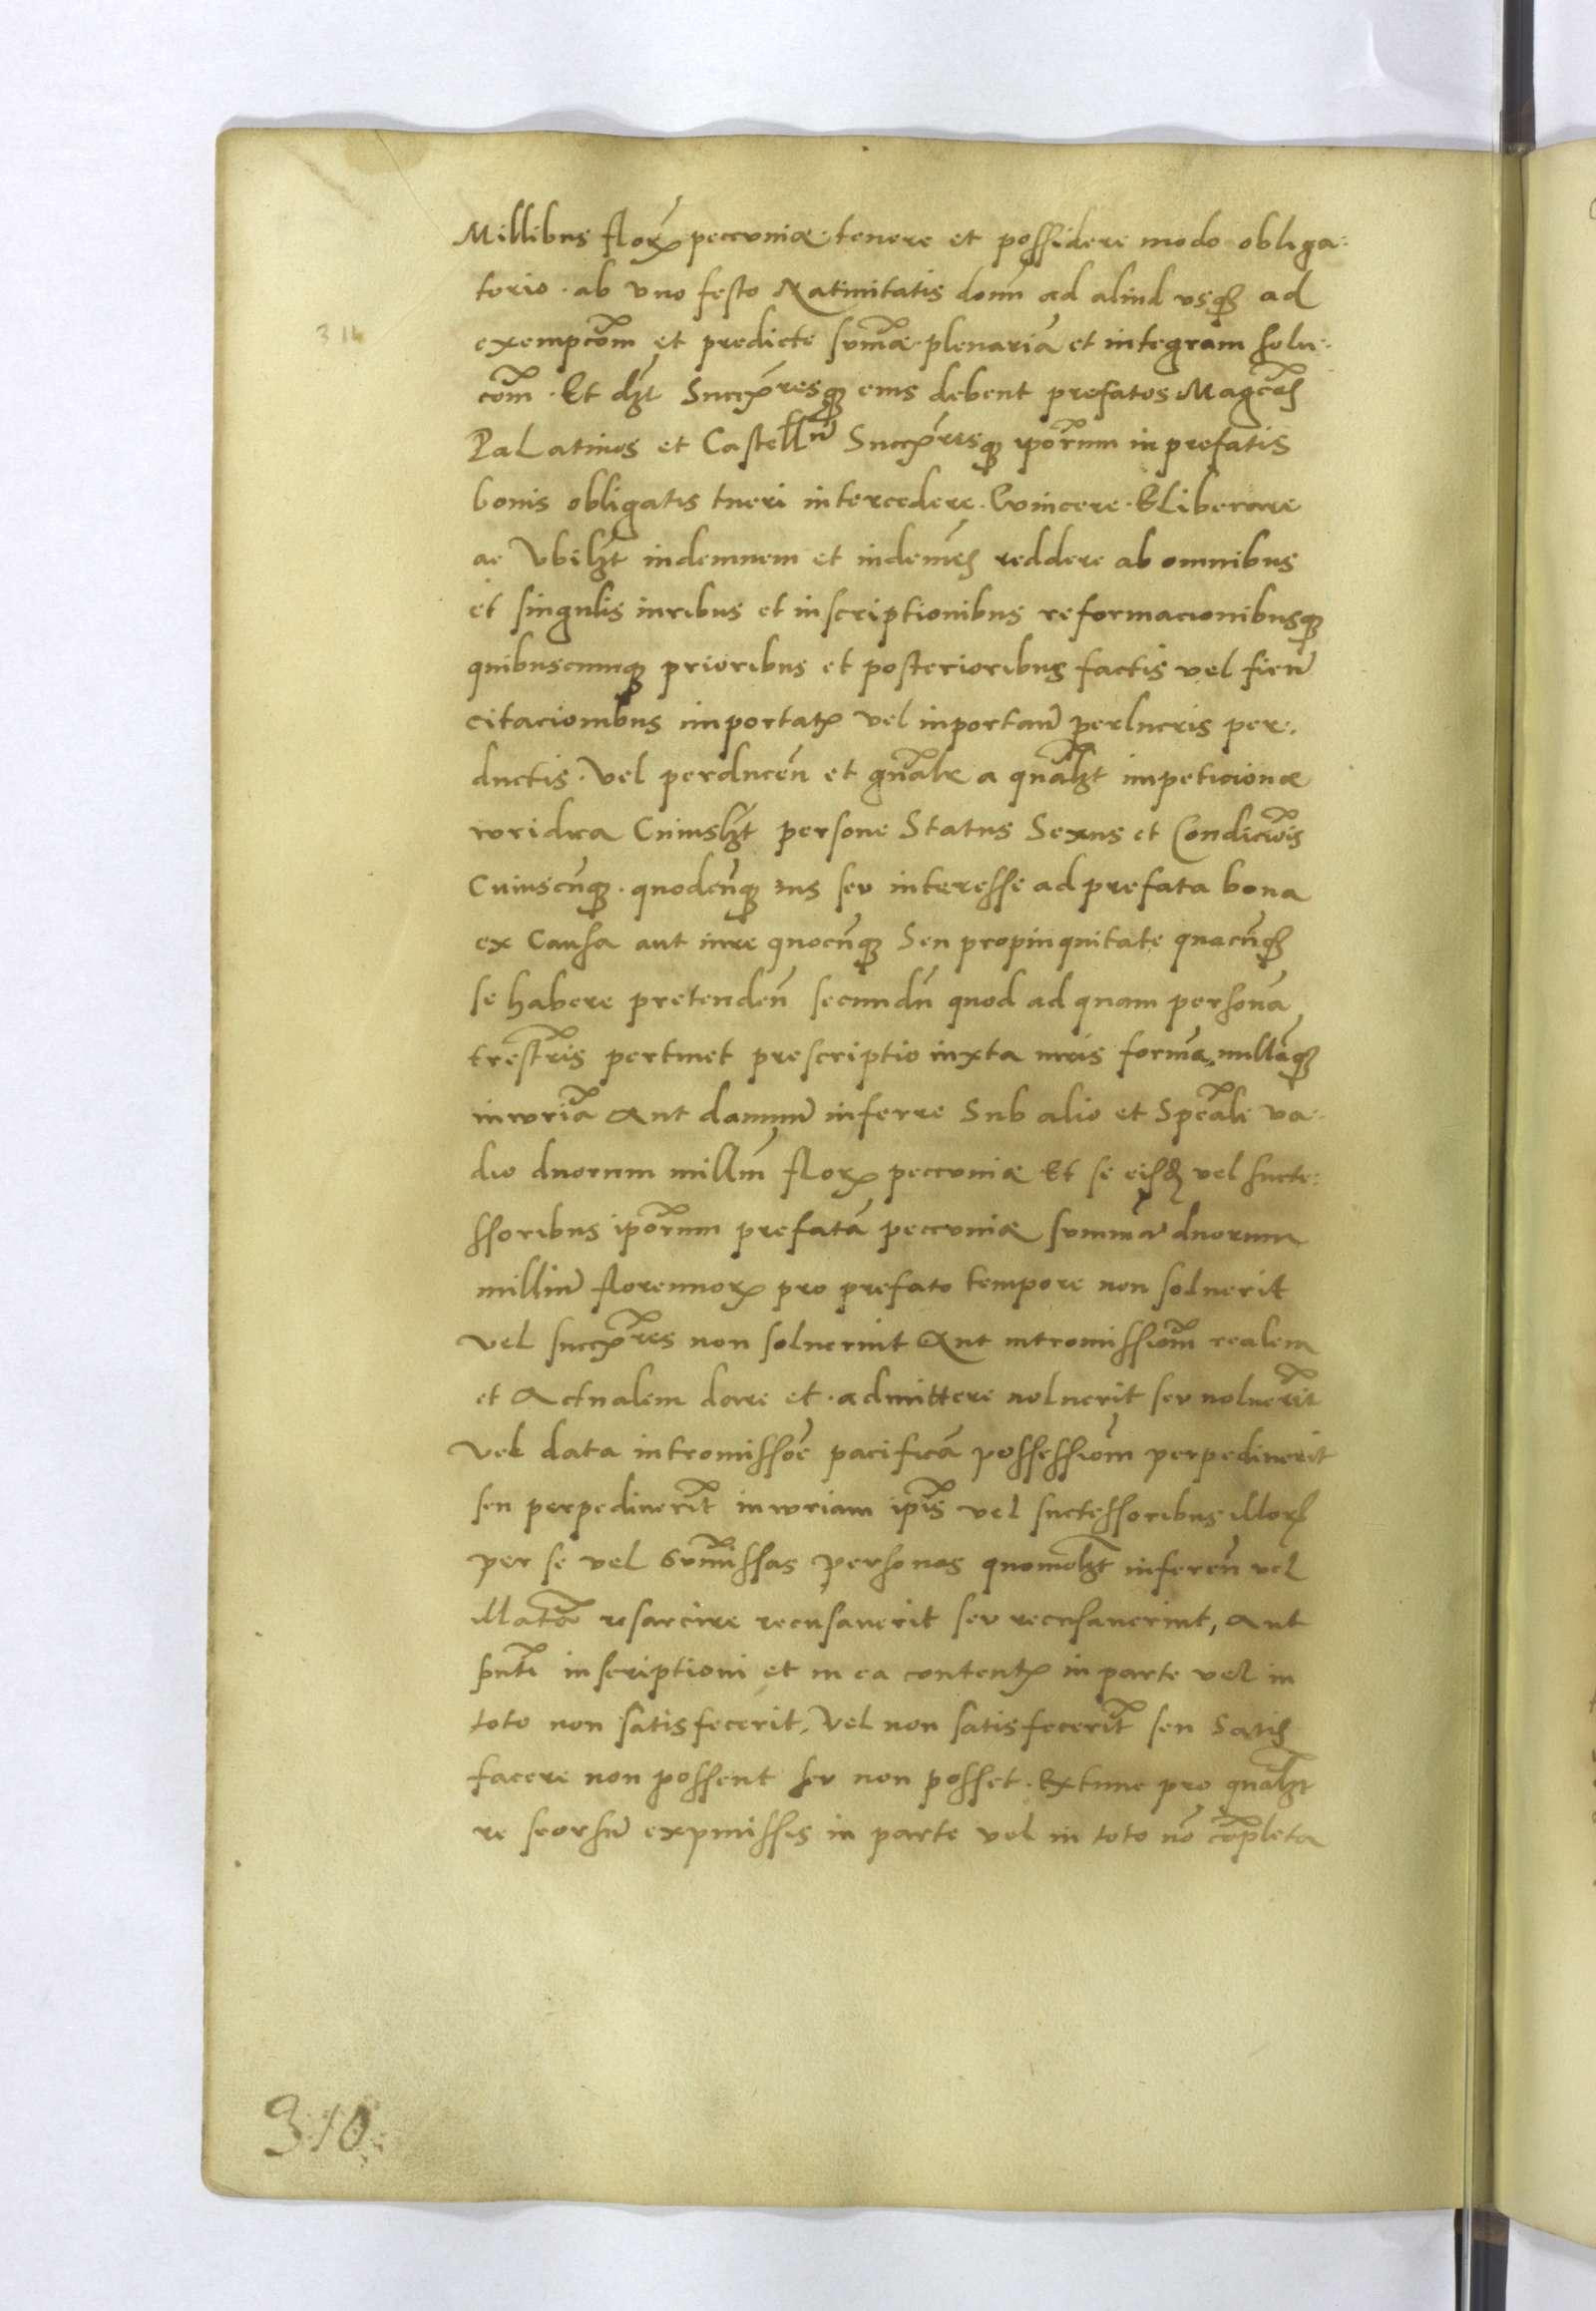 Millibus florꝝ peccuniæ tenere et possidere modo obliga:
torio · ab vno festo Natiuitatis domi ad aliud vsqꝫ ad
314
exempcõm et predicte sum̃æ plenariã et integram solu:
cõm · Et dꝫt Succꝑresqꝫ eius debent prefatos Magcos
Palatinos et Castelln̄ Succꝑresqꝫ ip̃orum in prefatis
bonis obligatis tueri intercedere · Euincere · Eliberare
ac Vbilꝫt indemnem et indem̃es reddere ab omnibus
et singulis iuribus et inscriptionibus reformacionibusqꝫ
quibuscumqꝫ prioribus et posterioribus factis vel fien̄
citacionibus importatꝭ vel inportan̄ perlucris per:
ductis · Vel perducen̄ et gñale a qualꝫt impeticione
iuridica Cuiuslꝫt persone Status Sexus et Condiciois
Cuiuscũqꝫ · quodcũqꝫ ius seu interesse ad prefata bona
ex Causa aut iure quocũqꝫ Seu propinquitate quacũqꝫ
se habere pretenden̄ secundũ quod ad quam personã
trestris pertinet prescriptio iuxta iuris formã, nullãqꝫ
iniuriã Aut damnũ inferre Sub alio et Spcãli va:
dio duorum millm̃ florꝝ peccuniæ Et se eisdꝫ vel succe:
ssoribus ip̃orum prefatã peccuniæ summã duorum
milliũ florenorꝝ pro prefato tempore non soluerit
vel succꝑres non soluerint Aut intromissiõm realem
et Actualem dare et · admittere noluerit seu noluerĩt
Vel data intromissõe pacificã possessiõm perpediuerit
seu perpediuerĩt iniuriam ip̃is vel successoribus illorꝝ
per se vel sum̃issas personas quomolꝫt inferen̄ vel
illatã resarcire recusauerit seu recusauerint, Aut
p̃nti inscriptioni et in ea contentꝭ in parte vel in
toto non satisfecerit, Vel non satisfecerĩt seu Satis
facere non possent seu non posset · Extunc pro qualꝫt
re seorsũ expmissis in parte vel in toto nõ cõpleta
310